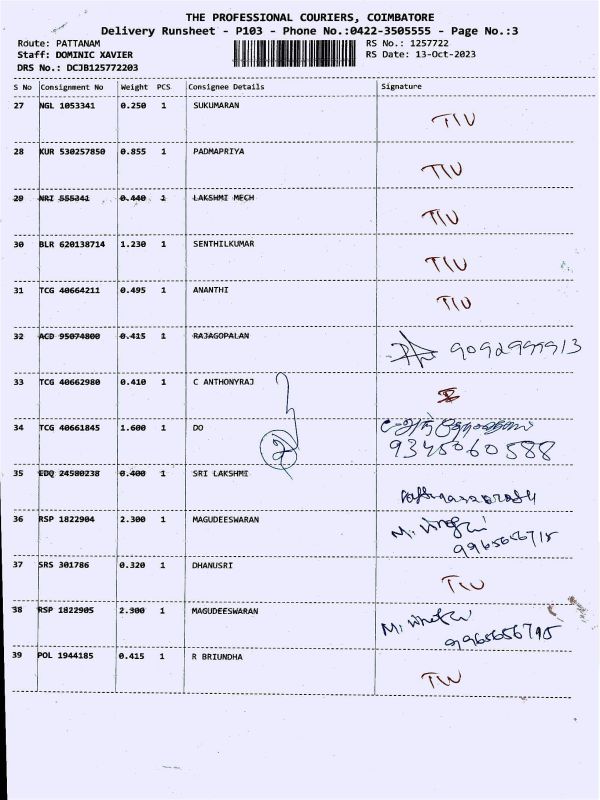 THE PROFESSIONAL COURIERS, COIMBATORE
Delivery Runsheet - P103 - Phone No.:0422-3505555 - Page No.:3
Route: PATTANAM RS No.: 1257722
Staff: DOMINIC XAVIER RS Date: 13-Oct-2023
DRS No.: DCJB125772203
S No Consignment No Weight PCS Consignee Details Signature
27 NGL 1053341 0.250 1 SUKUMARAN
28 KUR 530257850 0.855 1 PADMAPRIYA
29 NRI 555341 0.440 1 LAKSHMI MECH
30 BLR 620138714 1.230 1 SENTHILKUMAR
31 TCG 40664211 0.495 1 ANANTHI
32 ACD 95074800 0.415 1 RAJAGOPALAN
33 TCG 40662980 0.410 1 C ANTHONYRAJ
34 TCG 40661845 1.600 1 DO
9345060588
35 EDQ 24580238 0.400 1 SRI LAKSHMI
36 RSP 1822904 2.300 1 MAGUDEESWARAN
37 SRS 301786 0.320 1 DHANUSRI
38 RSP 1822905 2.900 1 MAGUDEESWARAN
39 POL 1944185 0.415 1 R BRIUNDHA